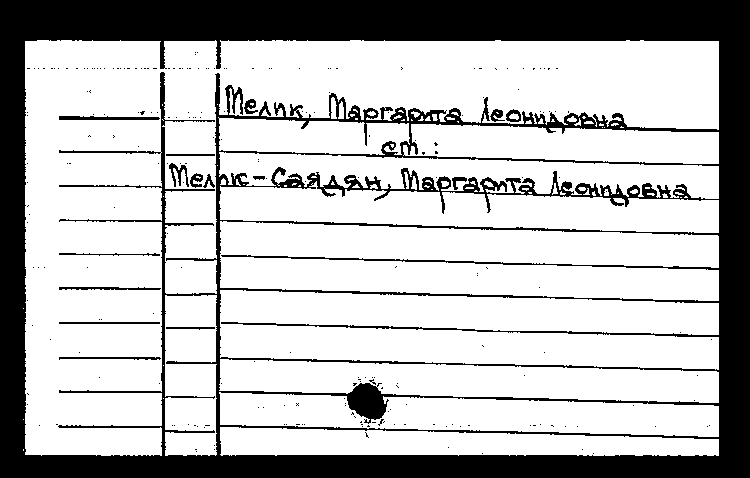 Мелик, Маргарита Леонидовна
см.:
Мелик-Саядян, Маргарита Леонидовна